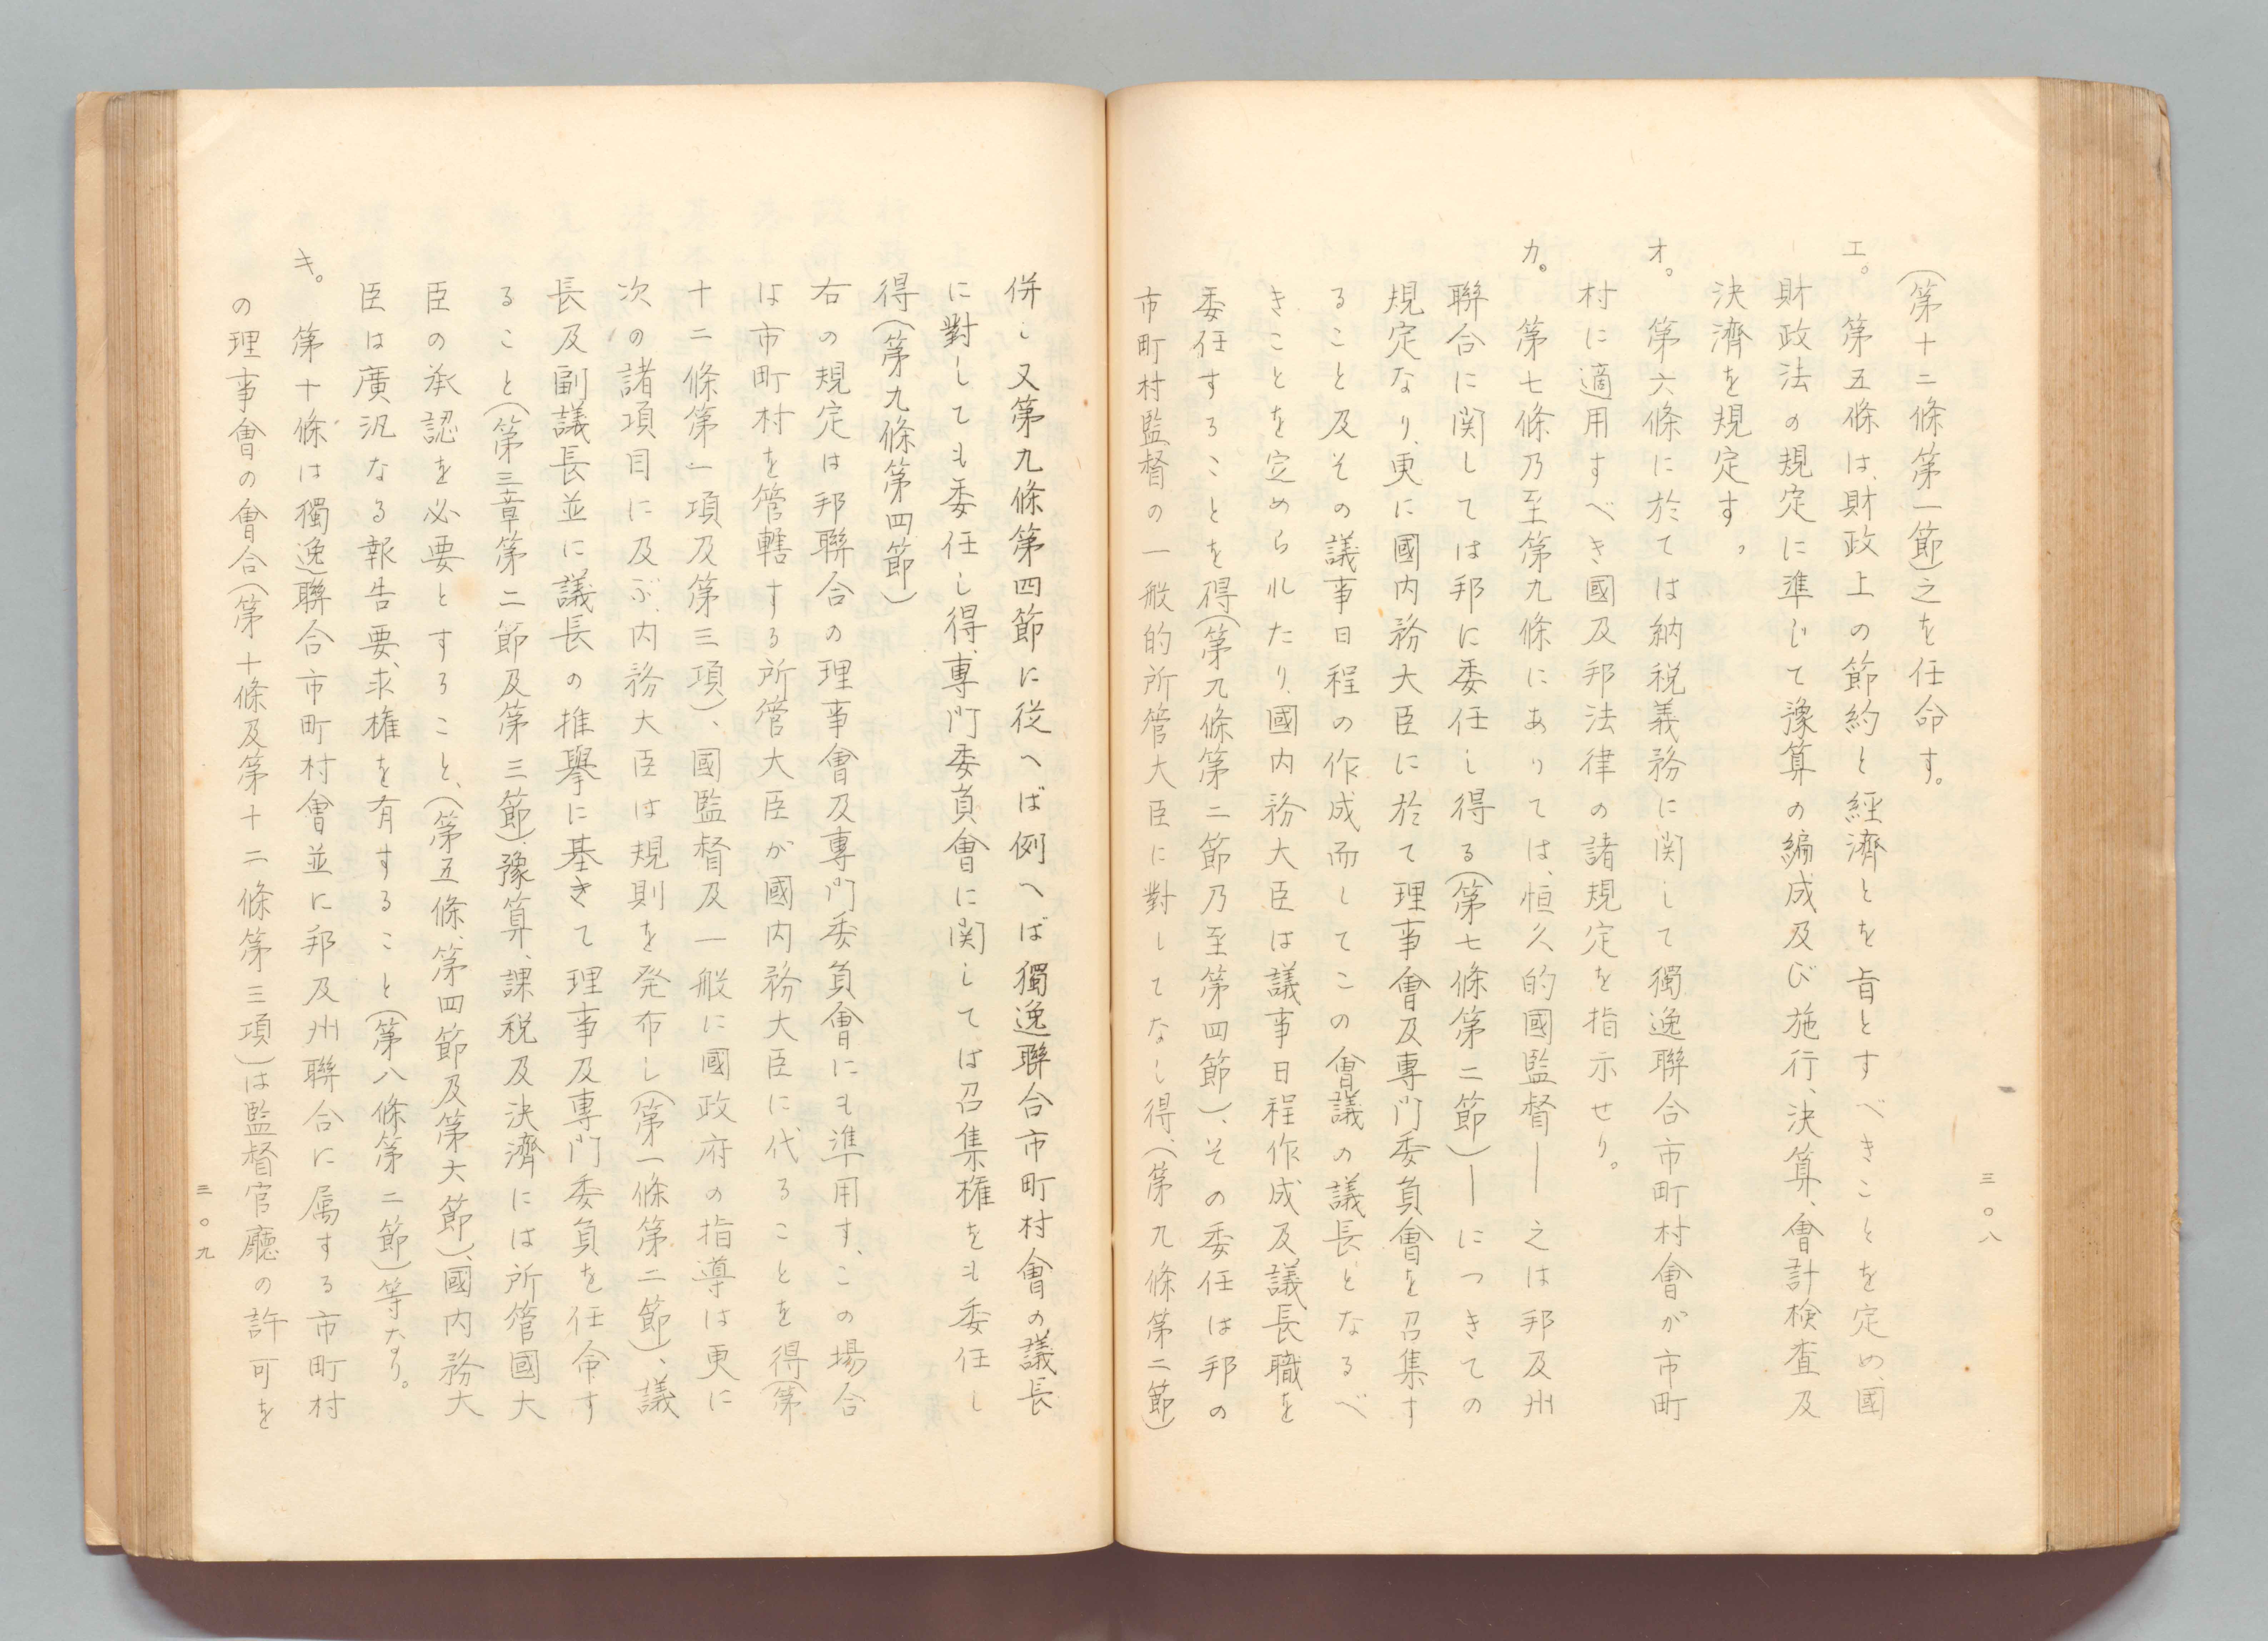 三〇八
(第十二條第一節)之を任命す。
エ。第五條は、財政上の節約と經濟とを旨とすべきことを定め、國
財政法の規定に準じて豫算の編成及び施行、決算、會計検査及
決濟を規定す。
オ。第六條に於ては納税義務に関して獨逸聯合市町村會が市町
村に適用すべき國及邦法律の諸規定を指示せり。
カ。第七條乃至第九條にありては、恒久的國監督——之は邦及州
聯合に関しては邦に委任し得る(第七條第二節)——につきての
規定なり、更に國内務大臣に於て理事會及專門委員會を召集す
ること及その議事日程の作成而してこの會議の議長となるべ
きことを定められたり、國内務大臣は議事日程作成及議長職を
委任することを得(第九條第二節乃至第四節)、その委任は邦の
市町村監督の一般的所管大臣に對してなし得、(第九條第二節)
併し又第九條第四節に従へば例へば獨逸聯合市町村會の議長
に對しても委任し得、專門委員會に関しては召集権をも委任し
得(第九條第四節)
右の規定は邦聯合の理事會及專門委員會にも準用す、この場合
は市町村を管轄する所管大臣が國内務大臣に代ることを得(第
十二條第一項及第三項)、國監督及一般に國政府の指導は更に
次の諸項目に及ぶ、内務大臣は規則を発布し(第一條第二節)、議
長及副議長並に議長の推擧に基きて理事及專門委員を任命す
ること(第三章第二節及第三節)、豫算、課税及決濟には所管國大
臣の承認を必要とすること、(第五條、第四節及第大節)、國内務大
臣は廣汎なる報告要求権を有すること(第八條第二節)等なり。
キ。第十條は獨逸聯合市町村會並に邦及州聯合に属する市町村
の理事會の會合(第十條及第十二條第三項)は監督官廳の許可を
三〇九